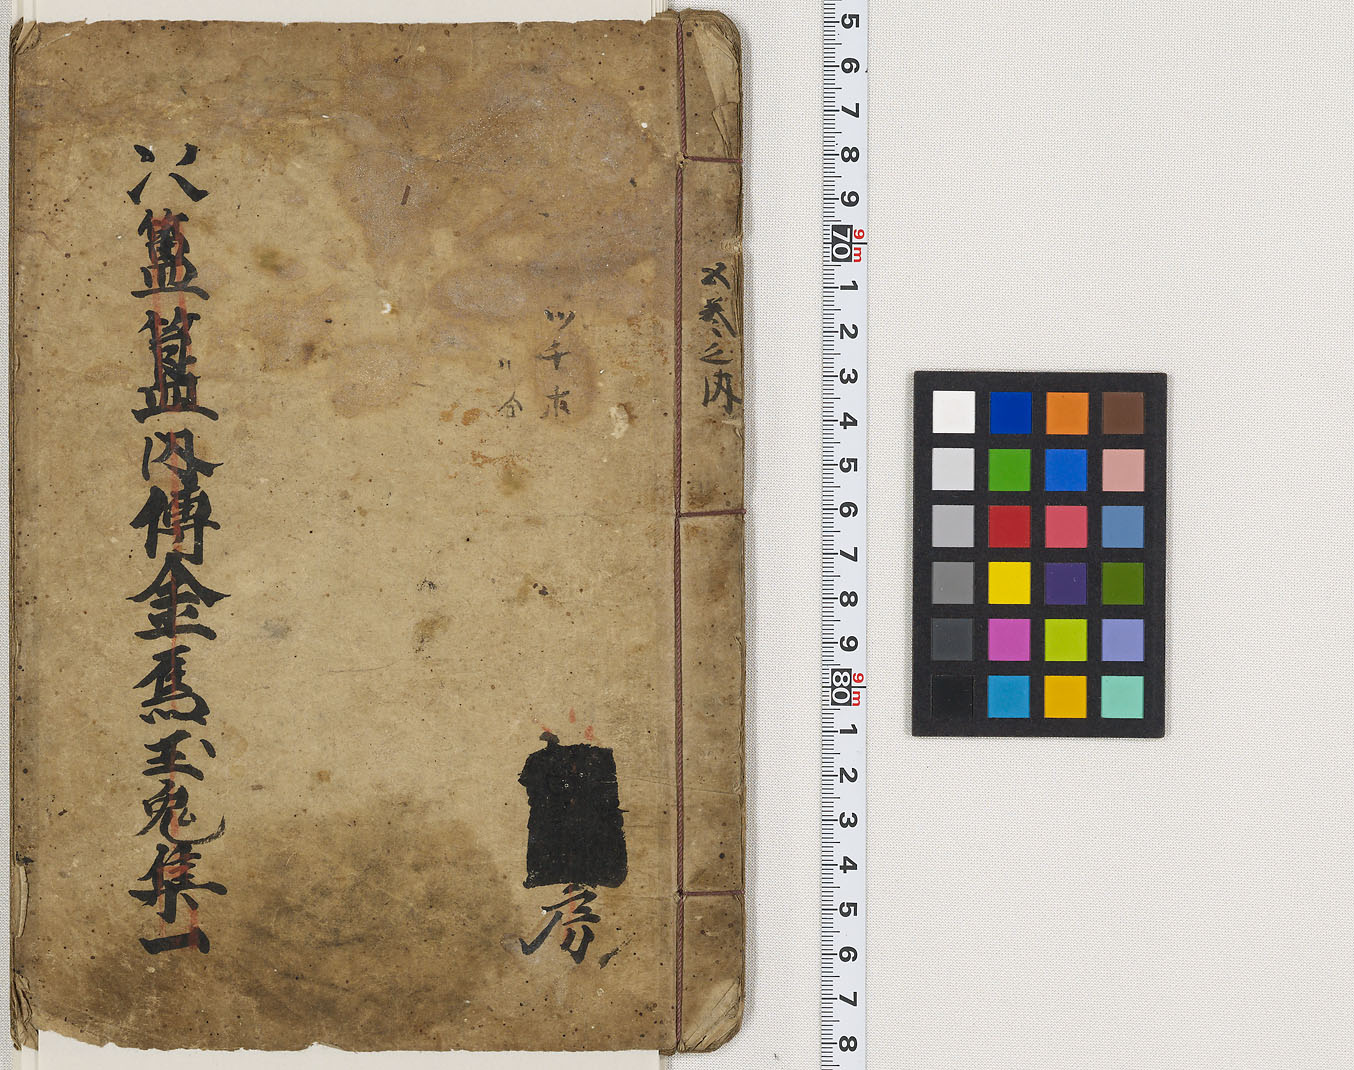 㐅巻之内
房
簠簋内傳金烏玉兎集一
5
6
7
8
9
70 9m
1
2
3
4
5
6
7
8
9
80 9m
1
2
3
4
5
6
7
8